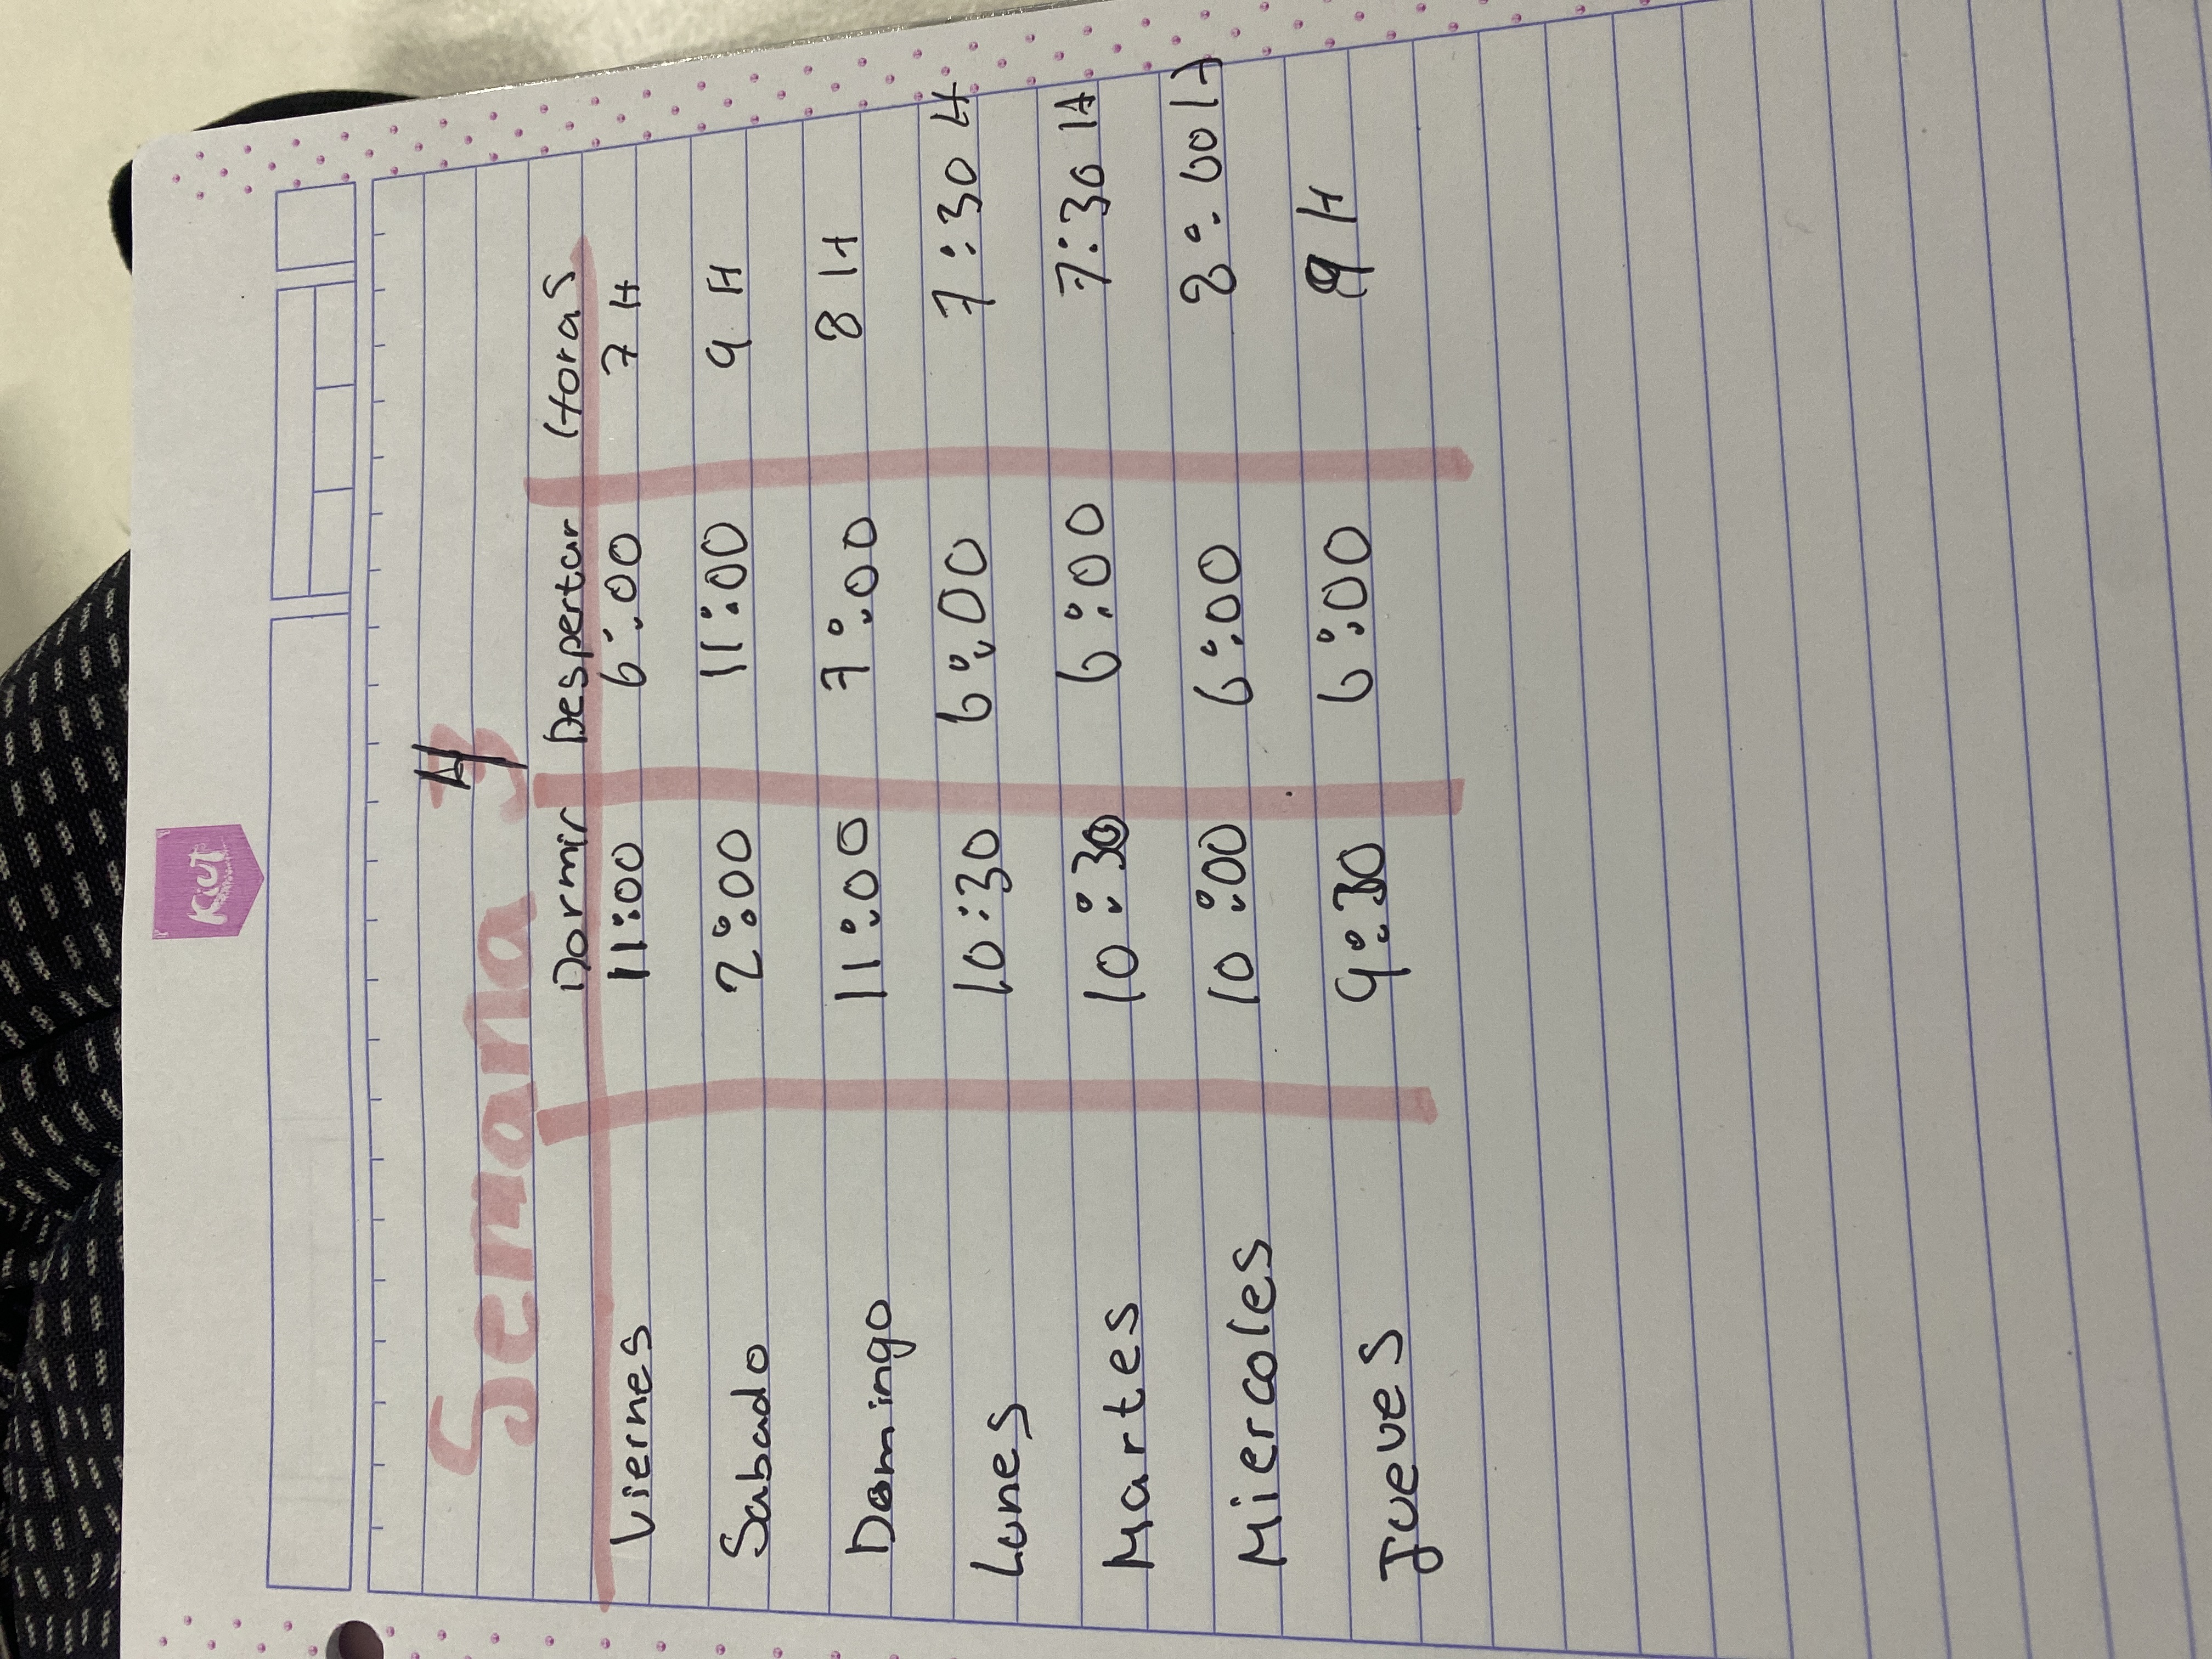 Kiut
Semana 4
Dormir Despertar Horas
Viernes 11:00 6:00 7 H
Sabado 2:00 11:00 9 H
Domingo 11:00 7:00 8 H
Lunes 10:30 6:00 7:30 H
Martes 10:30 6:00 7:30 H
Miercoles 10:00 6:00 8:00 H
Jueves 9:30 6:00 9 H